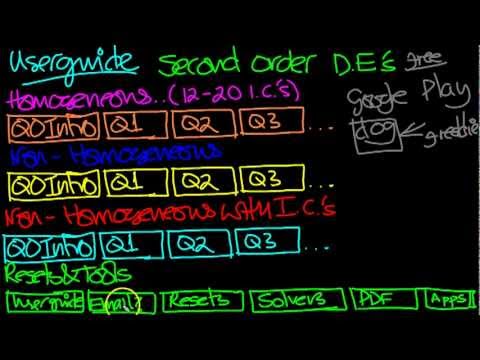 Userguide Second Order D.E's free
Homogeneous..(12-20 I.C.'s)
Google Play
Q0Intro Q1 Q2 Q3 ...
dog
Non-Homogeneous
Q0Intro Q1 Q2 Q3 ...
Non-Homogeneous with I.C.'s
Q0Intro Q1 Q2 Q3 ...
Resets&Tools
Userguide Email Resets Solvers PDF Apps